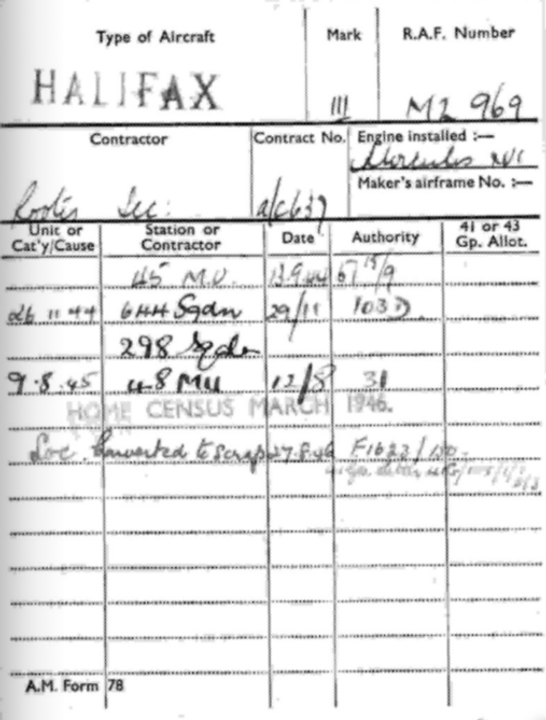 Type of Aircraft Mark R.A.F. Number
HALIFAX III ML 969
Contractor Contract No. Engine installed :—
Hercules XVI
Maker's airframe No. :—
Rootes Sec: a/c637
Unit or Cat'y/Cause Station or Contractor Date Authority 41 or 43 Gp. Allot.
45 M.U. 13.9.44 67 15/9
26 11 44 644 Sqdn 29/11 103D
298 Sqdn
9.8.45 48 MU 12/8 31
HOME CENSUS MARCH 1946.
Converted to Scrap 27.8.46 F1623/
A.M. Form 78